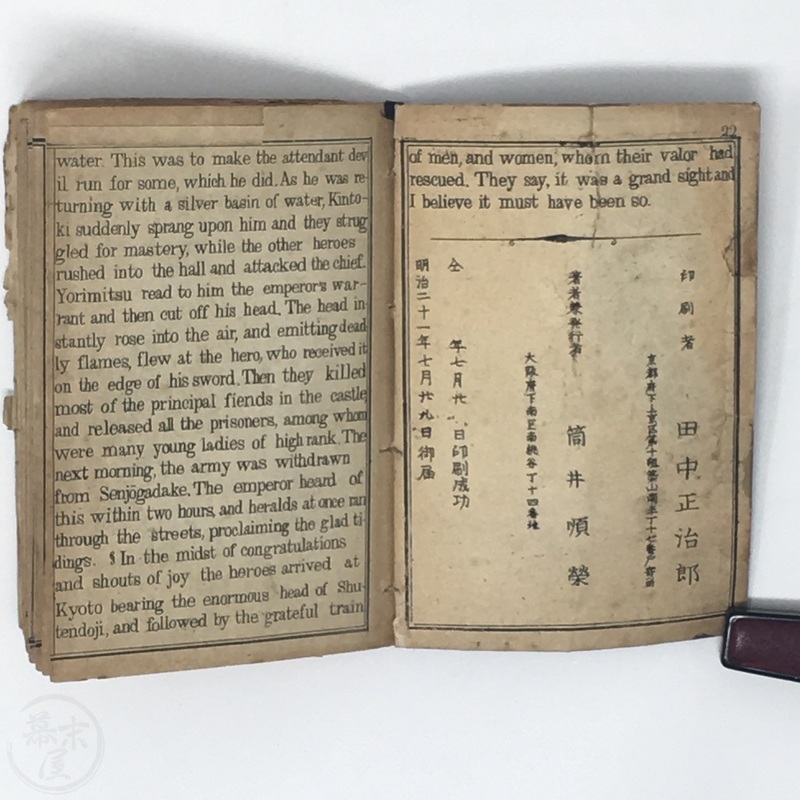 water. This was to make the attendant dev
il run for some, which he did. As he was re-
turning with a silver basin of water, Kinto-
ki suddenly sprang upon him and they strug
gled for mastery, while the other heroes
rushed into the hall and attacked the chief.
Yorimitsu read to him the emperor's war-
rant and then cut off his head. The head in-
stantly rose into the air, and emitting dead
ly flames, flew at the hero, who received it
on the edge of his sword. Then they killed
most of the principal fiends in the castle,
and released all the prisoners, among whom
were many young ladies of high rank. The
next morning, the army was withdrawn
from Senjōgadake. The emperor heard of
this within two hours, and heralds at once ran
through the streets, proclaiming the glad ti-
dings. § In the midst of congratulations
and shouts of joy the heroes arrived at
Kyoto bearing the enormous head of Shu-
tendoji, and followed by the grateful train
22
of men, and women, whom their valor had
rescued. They say, it was a grand sight and
I believe it must have been so.
印刷者 田中正治郎
著者兼発行者 筒井順榮
大阪府下南区南桃谷丁十四番地
仝 年七月廿 日印刷成功
明治二十一年七月廿九日御届
幕末屋